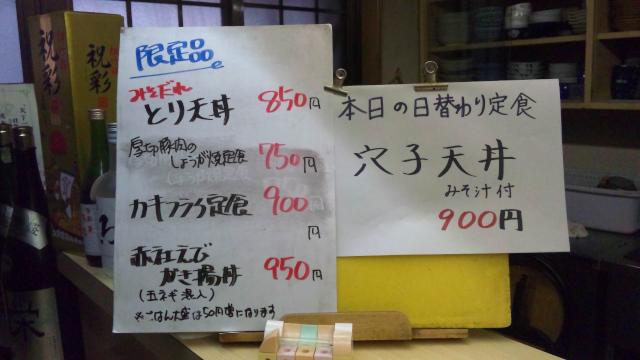 祝彩
祝彩
限定品
みそだれ
とり天丼 850円
厚切豚肉の
しょうが焼定食 750円
カキフライ定食 900円
円
赤エビ
かき揚丼 950円
(玉ネギ混入)
※ごはん大盛は50円増になります
本日の日替わり定食
穴子天丼
みそ汁付
900円
栄